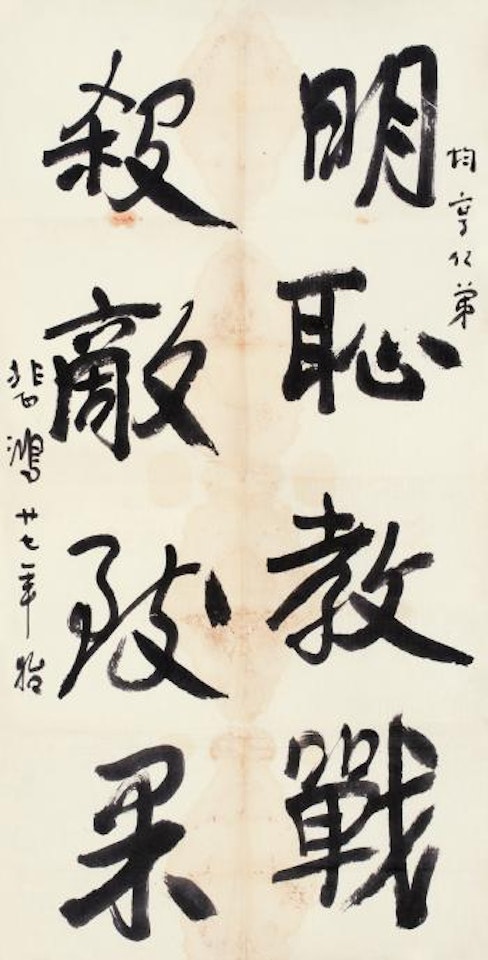 均亨仁弟
明恥教戰
殺敵致果
悲鴻廿七年始